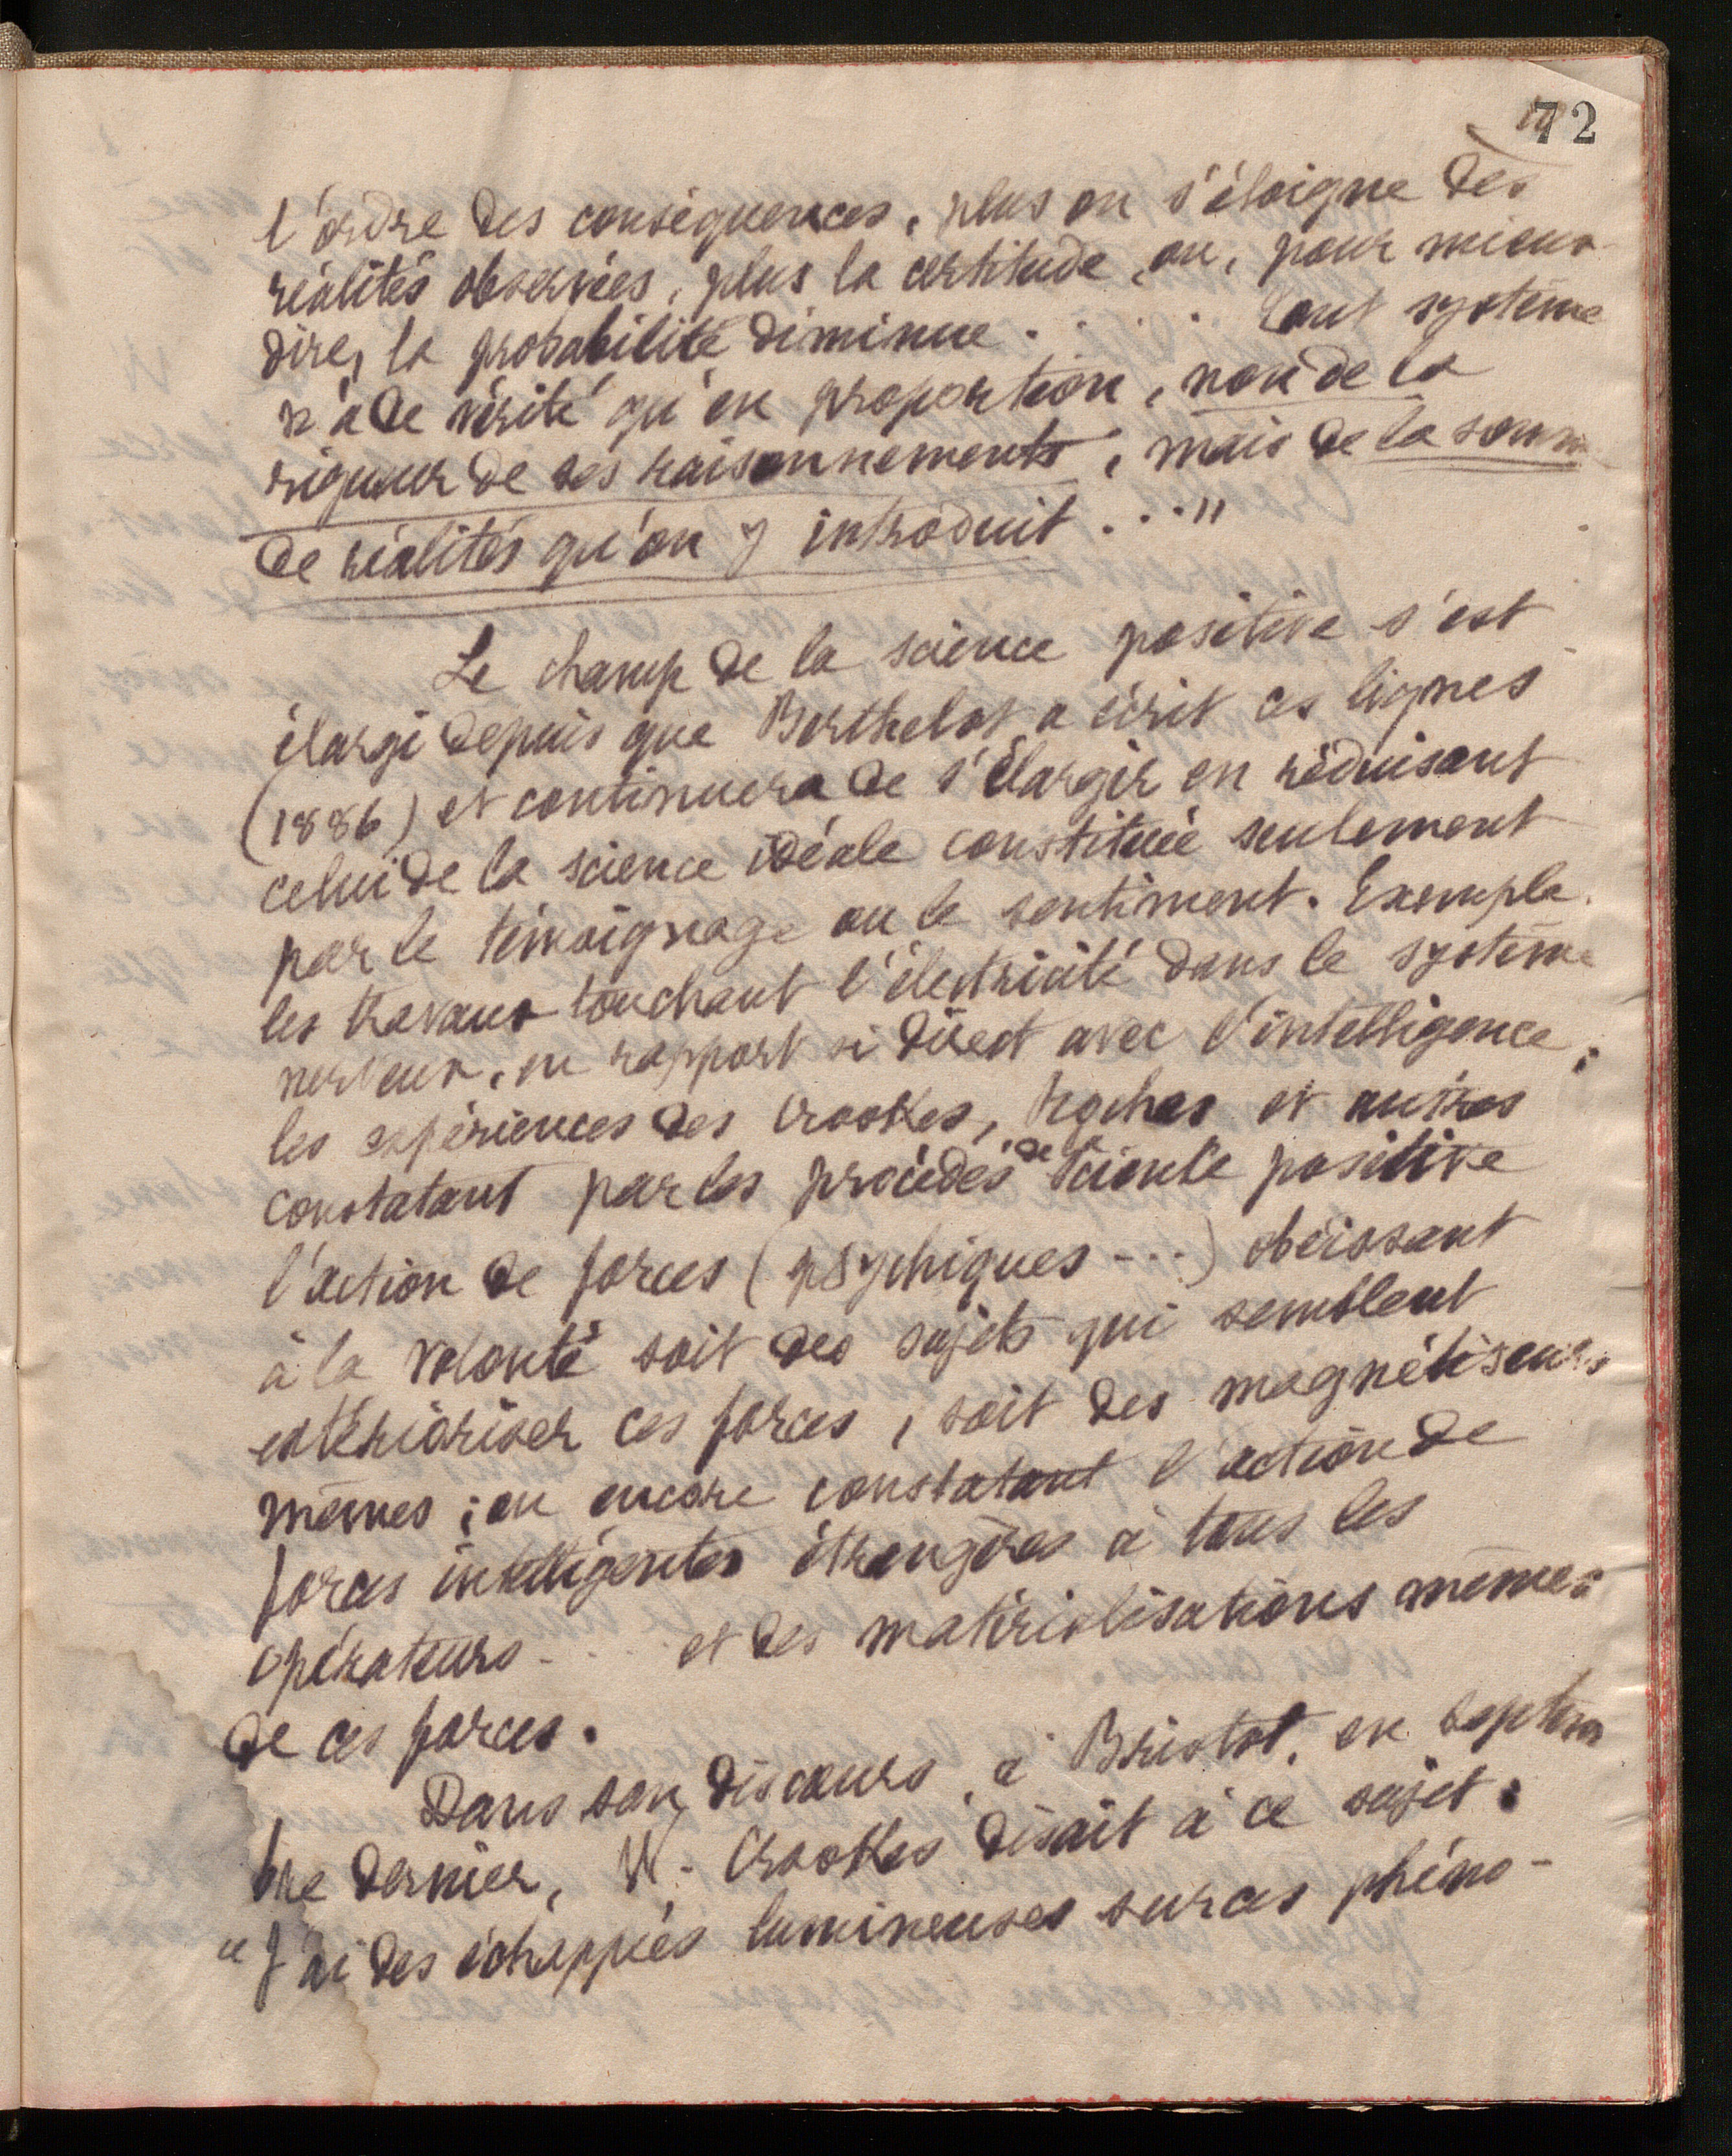 72
l'ordre des conséquences, plus on s'éloigne des
réalités observées, plus la certitude, ou, pour mieux
dire, la probabilité diminue. . . . . Tout système
n'a de vérité qu'en proportion, non de la
rigueur de ses raisonnements, mais de la somme
de réalités qu'on y introduit . . ."
Le champ de la science positive s'est
élargi depuis que Berthelot a écrit ces lignes
(1886) et continuera de s'élargir en réduisant
celui de la science idéale constituée seulement
par le témoignage ou le sentiment. Exemple.
les travaux touchant l'électricité dans le système
nerveux, en rapport si direct avec l'intelligence;
les expériences des Crookes, et autres
constatant par les procédés de la science positive
l'action de forces (psychiques - - -) obéissant
à la volonté soit des sujets qui semblent
extérioriser ces forces, soit des magnétiseurs
mêmes; ou encore constatant l'action de
forces intelligentes étrangères à tous les
opérateurs - . . . et des matérialisations mêmes
de ces forces.
Dans son discours, à Bristol, en septem
bre dernier, W. Crookes disait à ce sujet:
"J'ai des échappées lumineuses sur ces phéno-